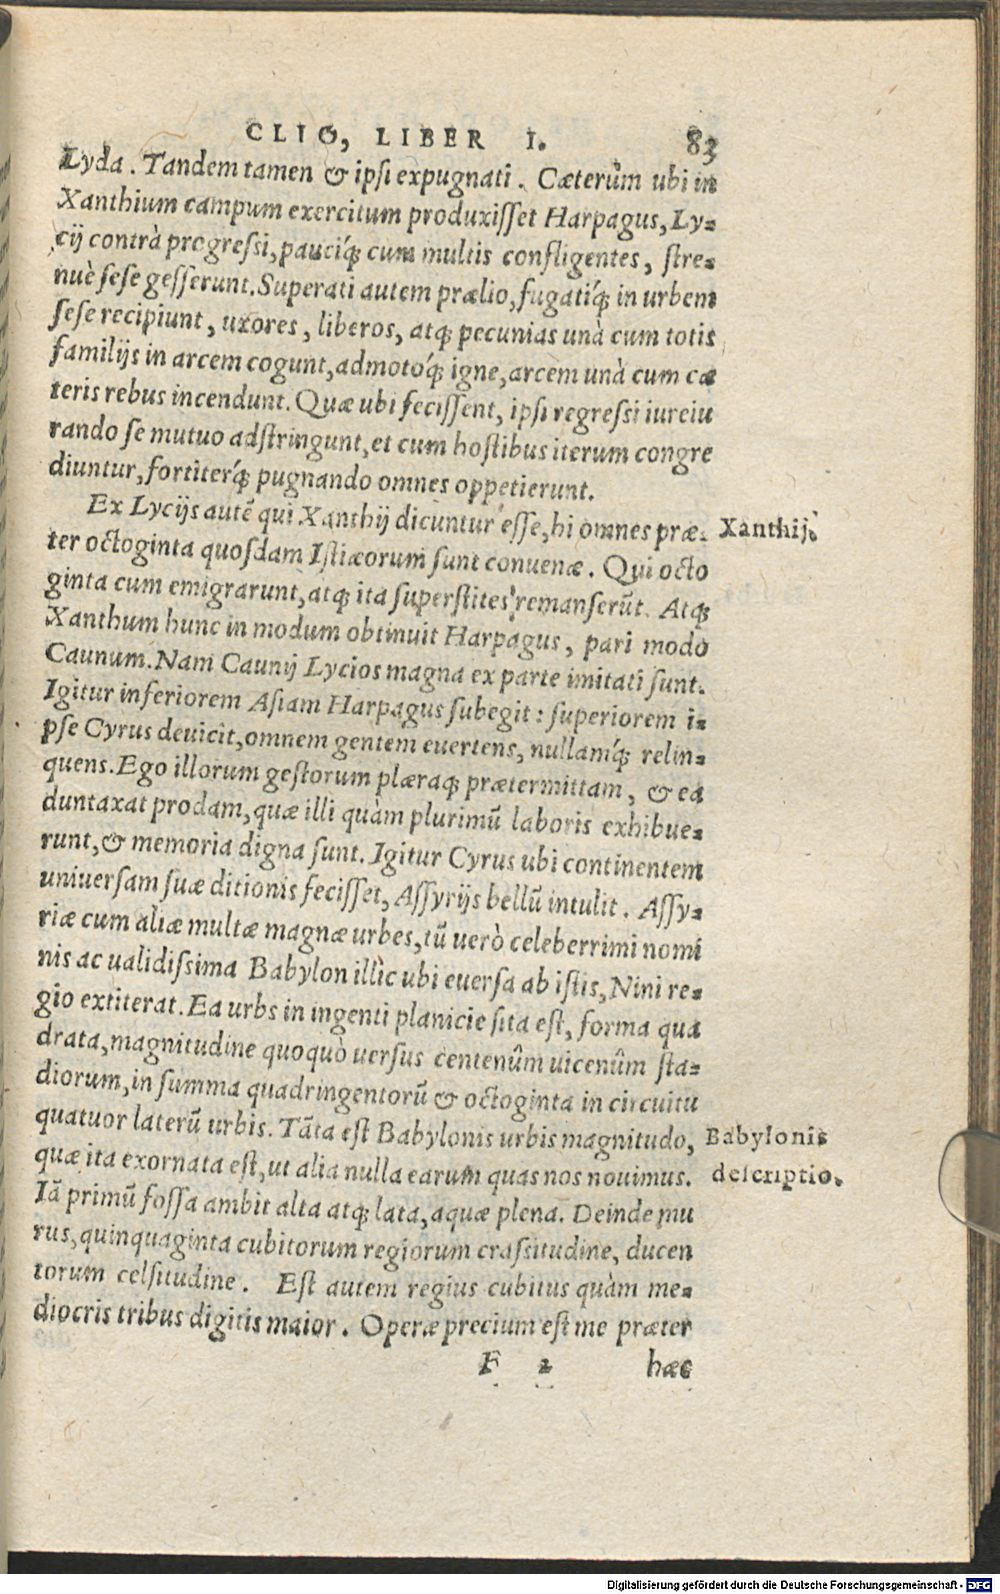 CLIO, LIBER I. 83
Lyda. Tandem tamen & ipsi expugnati. Cæterùm ubi in
Xanthium campum exercitum produxisset Harpagus, Ly-
cij contrà progressi, pauciq́; cum multis confligentes, stre-
nuè sese gesserunt. Superati autem prælio, fugatiq́; in urbem
sese recipiunt, uxores, liberos, atq; pecunias unà cum totis
familijs in arcem cogunt, admotóq́; igne, arcem unà cum cæ
teris rebus incendunt. Quæ ubi fecissent, ipsi regressi iureiu
rando se mutuo adstringunt, et cum hostibus iterum congre
diuntur, fortiterq́; pugnando omnes oppetierunt.
Ex Lycijs autē qui Xanthij dicuntur esse, hi omnes præ- Xanthij.
ter octoginta quosdam Istiæorum sunt conuenæ. Qui octo
ginta cum emigrarunt, atq; ita superstites remanserūt. Atq;
Xanthum hunc in modum obtinuit Harpagus, pari modo
Caunum. Nam Caunij Lycios magna ex parte imitati sunt.
Igitur inferiorem Asiam Harpagus subegit: superiorem i-
pse Cyrus deuicit, omnem gentem euertens, nullamq́; relin-
quens. Ego illorum gestorum plæraq; prætermittam, & ea
duntaxat prodam, quæ illi quàm plurimū laboris exhibue-
runt, & memoria digna sunt. Igitur Cyrus ubi continentem
uniuersam suæ ditionis fecisset, Assyrijs bellū intulit. Assy-
riæ cum aliæ multæ magnæ urbes, tū uerò celeberrimi nomi
nis ac ualidissima Babylon illìc ubi euersa ab istis, Nini re-
gio extiterat. Ea urbs in ingenti planicie sita est, forma qua
drata, magnitudine quoquò uersus centenûm uicenûm sta-
diorum, in summa quadringentorū & octoginta in circuitu
quatuor laterū urbis. Tāta est Babylonis urbis magnitudo, Babylonis
quæ ita exornata est, ut alia nulla earum quas nos nouimus. descriptio.
Iā primū fossa ambit alta atq; lata, aquæ plena. Deinde mu
rus, quinquaginta cubitorum regiorum crassitudine, ducen
torum celsitudine. Est autem regius cubitus quàm me-
diocris tribus digitis maior. Operæ precium est me præter
F 2 hæc
Digitalisierung gefördert durch die Deutsche Forschungsgemeinschaft - DFG